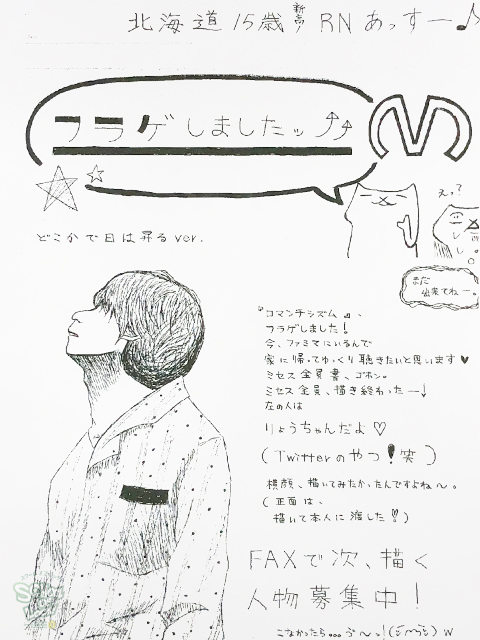 北海道 15歳 新高1 RN あっすー♪
フラゲしましたッ↑↑
どこかで日は昇るver.
えっ?
まだ
出来てねー。
『ロマンチシズム』、
フラゲしました!
今、ファミマにいるんで
家に帰ってゆっくり聴きたいと思います♥
ミセス全員書、ゴホン。
ミセス全員、描き終わったー↓
左の人は
りょうちゃんだよ♡
(Twitterのやつ!笑)
横顔、描いてみたかったんですよね〜。
(正面は、
描いて本人に渡した!)
FAXで次、描く
人物募集中!
こなかったら…ぶ〜っ! w